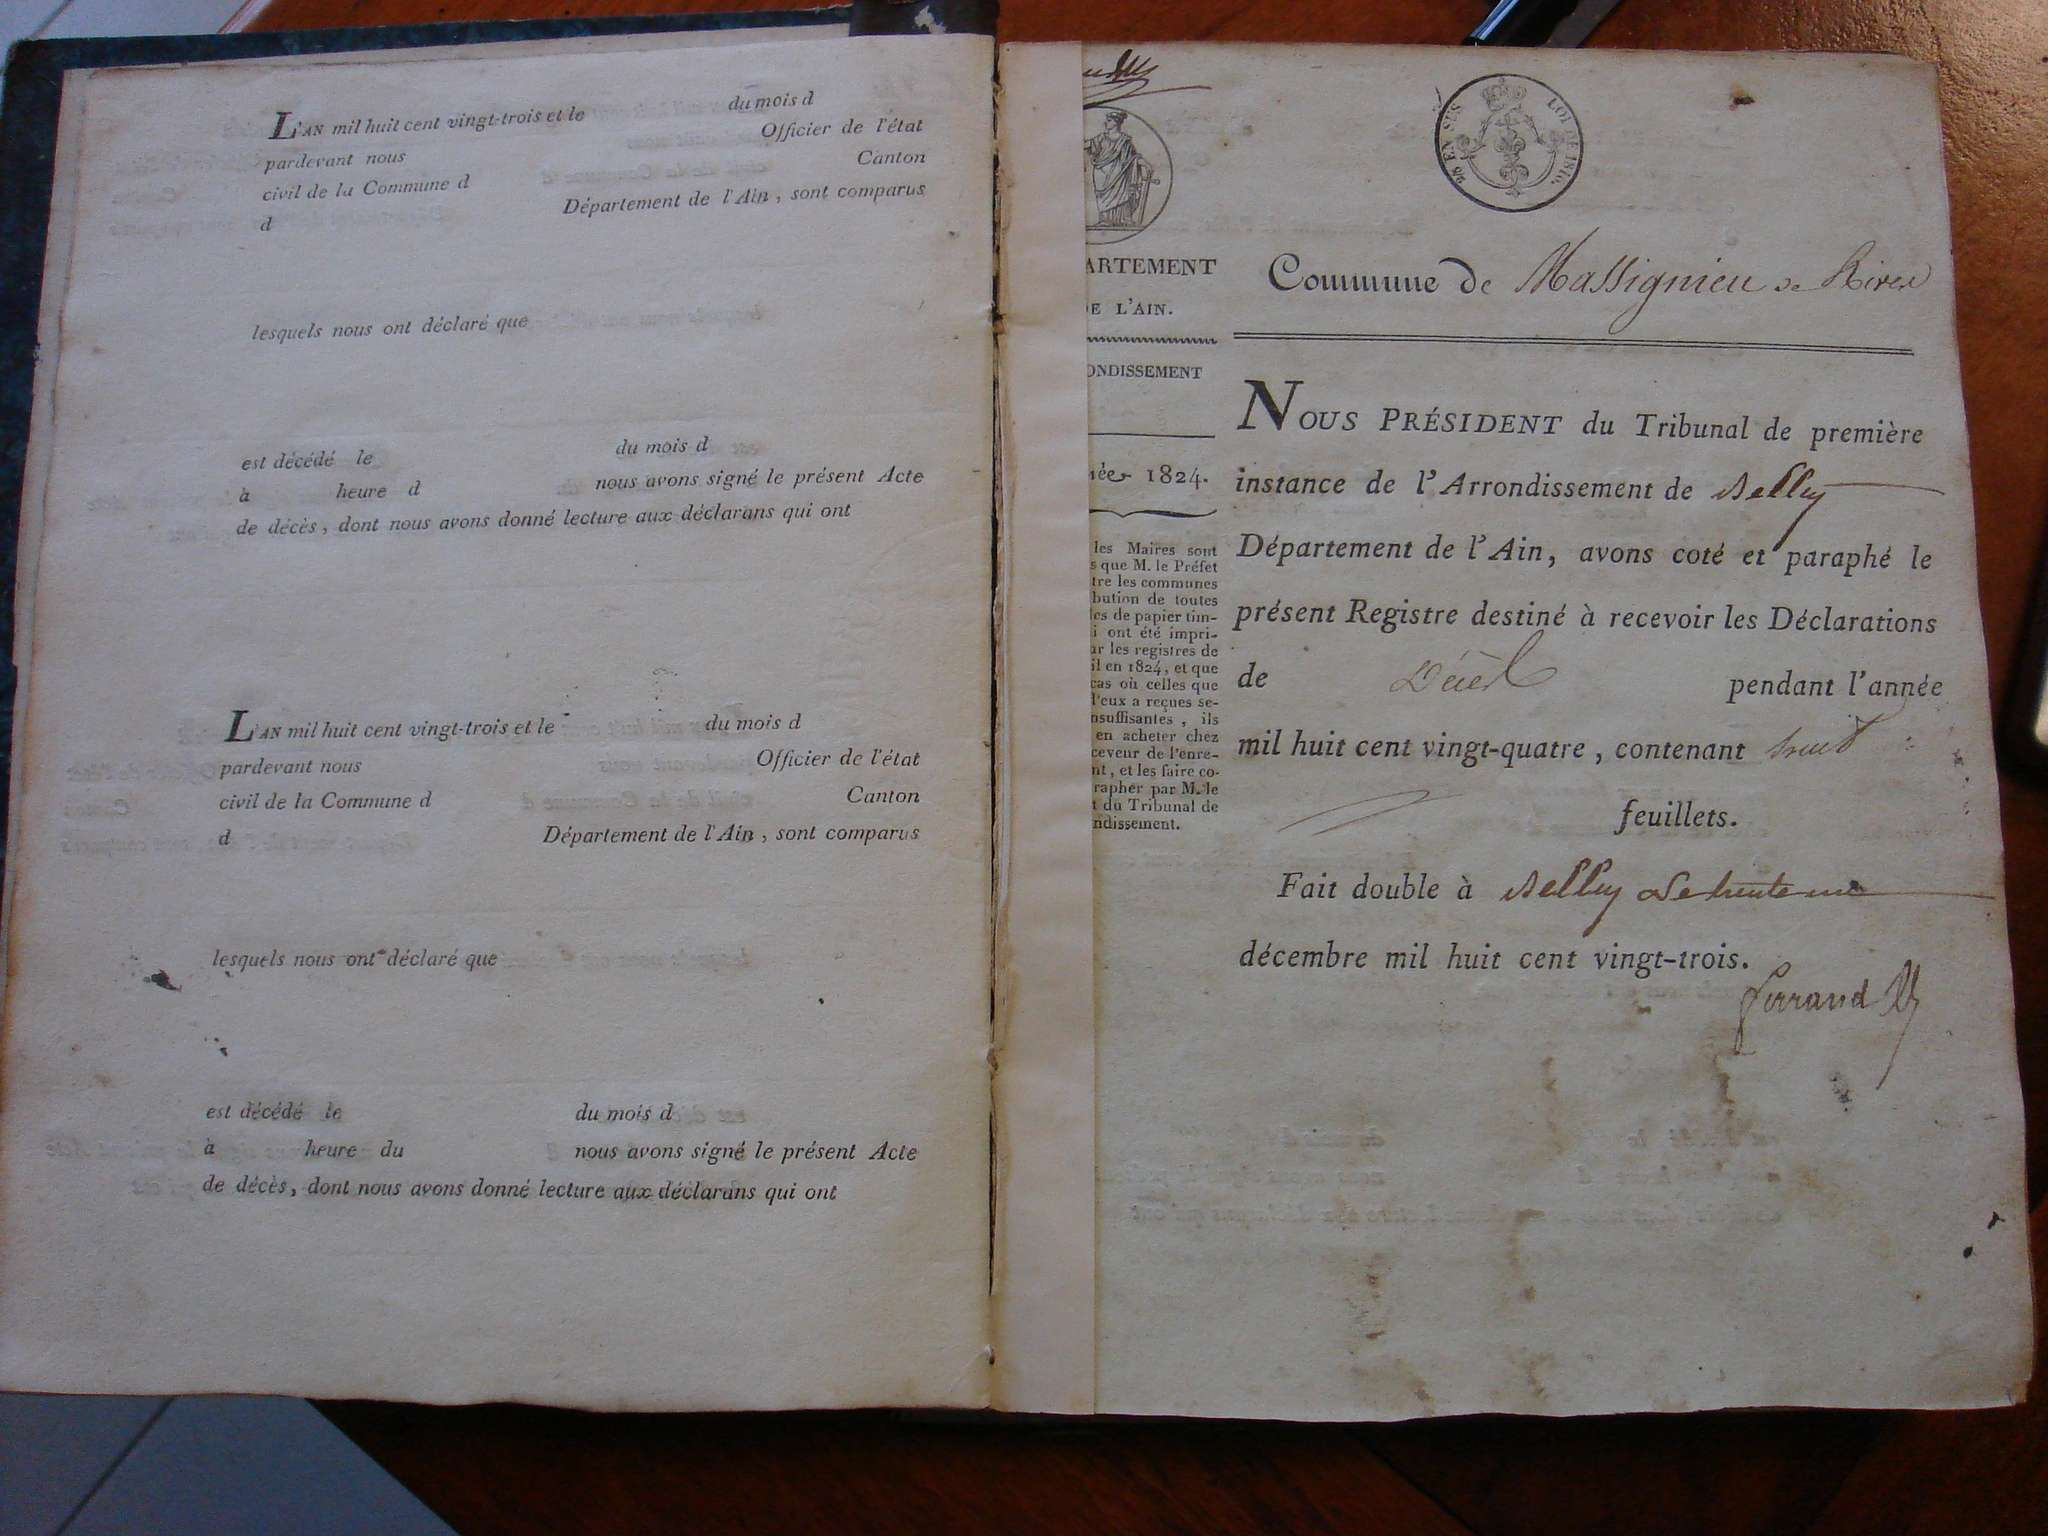 L'AN mil huit cent vingt-trois et le du mois d
pardevant nous Officier de l'état
civil de la Commune d Canton
d Département de l'Ain, sont comparus
lesquels nous ont déclaré que
est décédé le du mois d
à heure d nous avons signé le présent Acte
de décès, dont nous avons donné lecture aux déclarans qui ont
L'AN mil huit cent vingt-trois et le du mois d
pardevant nous Officier de l'état
civil de la Commune d Canton
d Département de l'Ain, sont comparus
lesquels nous ont déclaré que
est décédé le du mois d
à heure du nous avons signé le présent Acte
de décès, dont nous avons donné lecture aux déclarans qui ont
ARTEMENT
DE L'AIN.
ONDISSEMENT
née 1824.
les Maires sont
s que M. le Préfet
tre les communes
bution de toutes
les de papier tim-
i ont été impri-
ur les registres de
il en 1824, et que
cas où celles que
d'eux a reçues se-
nsuffisantes, ils
en acheter chez
ceveur de l'enre-
nt, et les faire co-
rapher par M. le
t du Tribunal de
ndissement.
EN SUS LOI DE 1816.
Commune de Massignieu de Rives
NOUS PRÉSIDENT du Tribunal de première
instance de l'Arrondissement de Belley
Département de l'Ain, avons coté et paraphé le
présent Registre destiné à recevoir les Déclarations
de Décès pendant l'année
mil huit cent vingt-quatre, contenant huit
feuillets.
Fait double à Belley le trente un
décembre mil huit cent vingt-trois.
Ferrand